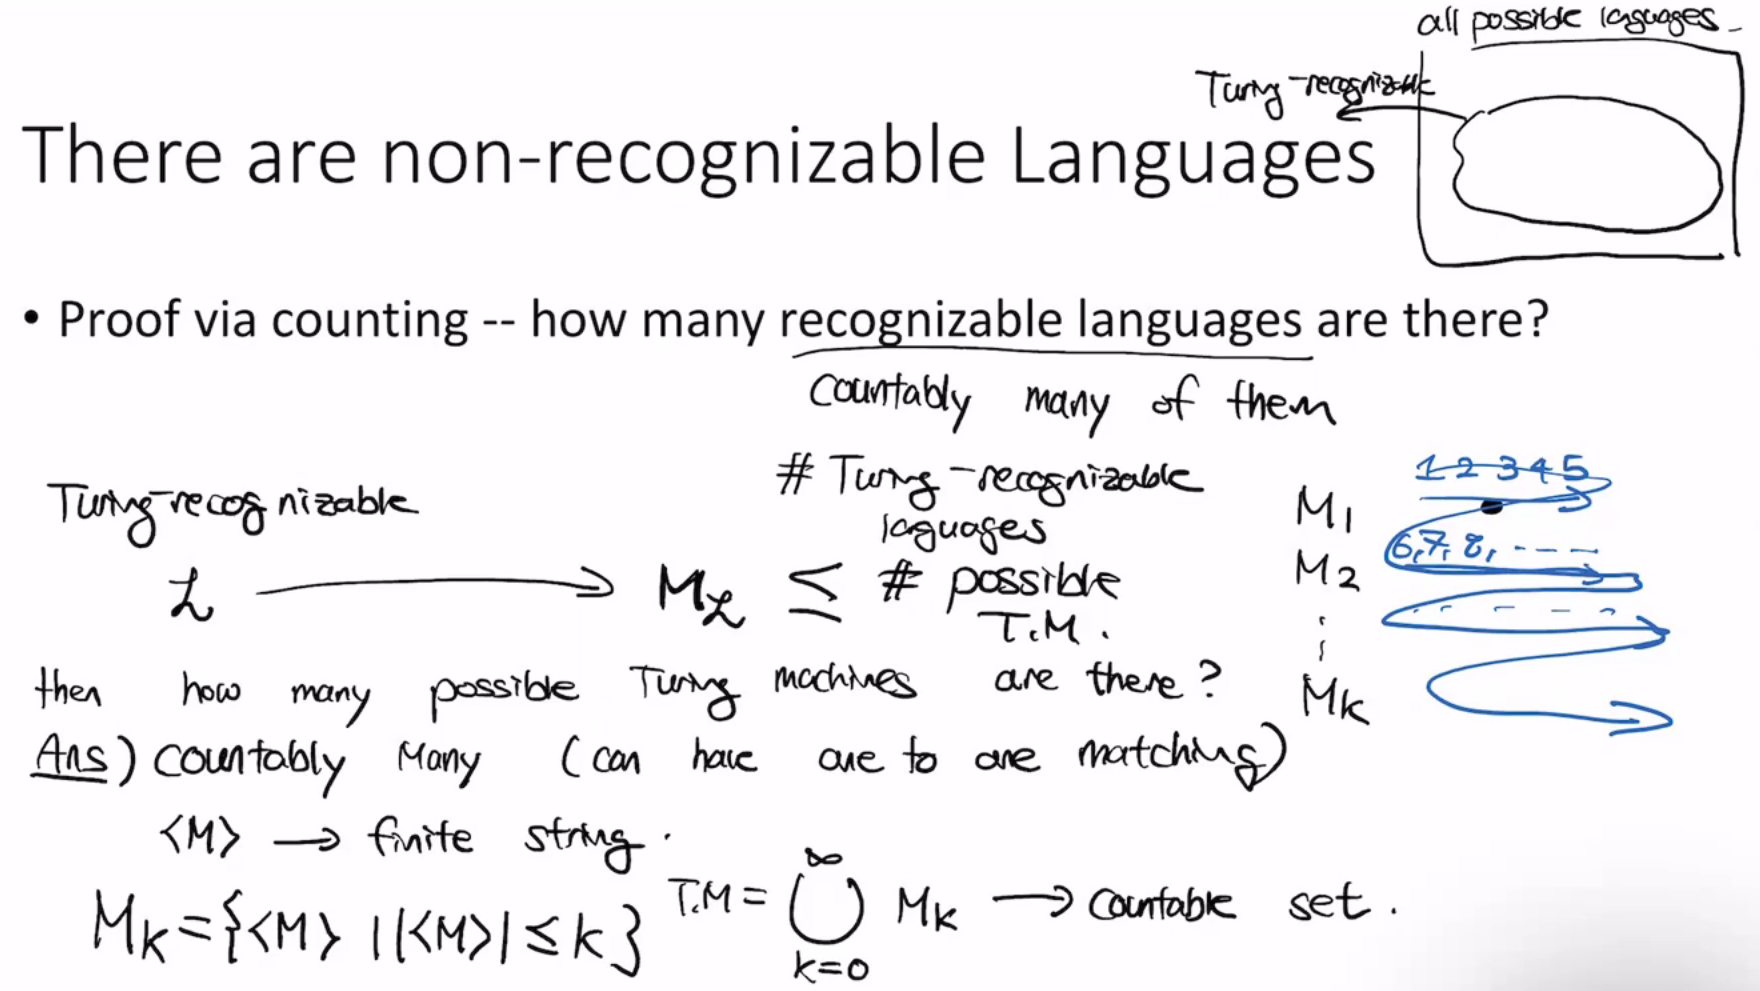 all possible laguages
Turing-recognizable
There are non-recognizable Languages
• Proof via counting -- how many recognizable languages are there?
Countably many of them
# Turing-recognizable
laguages
Turing-recognizable
L → M_L ≤ # possible
T.M.
M1 1 2 3 4 5
M2 6, 7, 8, ----
⋮ - - - -
MK
then how many possible Turing machines are there?
Ans) Countably Many (can have one to one matching)
<M> → finite string.
MK = {<M> | |<M>| ≤ k}
T.M = ⋃_{k=0}^{∞} MK → Countable set.